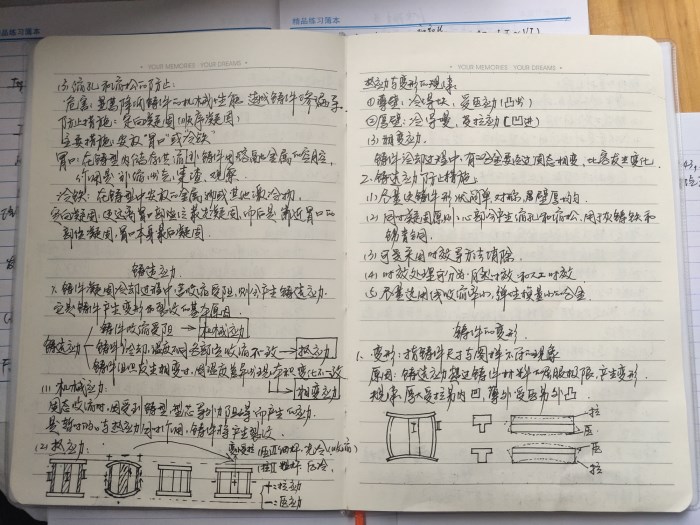 精品练习簿本
精品练习簿本
YOUR MEMORIES YOUR DREAMS
(3) 缩孔和缩松的防止:
危害: 显著降低铸件的机械性能, 造成铸件渗漏等.
防止措施: 定向凝固(顺序凝固)
主要措施: 安放"冒口"或冷铁"
冒口: 在铸型内储存供补缩铸件用熔融金属的空腔,
作用是补缩、排气、集渣、观察.
冷铁: 在铸型中安放的金属物或其他激冷物.
定向凝固: 使远离冒口的部位最先凝固, 而后是靠近冒口的
部位凝固, 冒口本身最后凝固.
铸造应力.
1. 铸件凝固冷却过程中, 若收缩受阻, 则会产生铸造应力.
它是铸件产生变形和裂纹的基本原因.
铸件收缩受阻 → 机械应力
铸造应力 铸件冷却, 温度不同各部位收缩不一致 → 热应力
铸件组织发生相变时, 因温度差异出现体积变化不一致
→ 相变应力
(1) 机械应力:
固态收缩时, 因受到铸型型芯等外力阻碍而产生的应力.
是暂时的, 与热应力共同作用, 铸件将产生裂纹.
(2) 热应力:
粗杆: 后冷
+: 拉应力
-: 压应力
YOUR MEMORIES YOUR DREAMS
热应力与变形的规律:
① 薄壁: 冷得快, 受压应力(凸出)
② 厚壁: 冷得慢, 受拉应力 [凹进)
(3) 相变应力.
铸件冷却过程中, 有的合金要经过固态相变, 比容发生变化.
2. 铸造应力防止措施:
(1) 尽量使铸件形状简单、对称、壁厚均匀.
(2) 同时凝固原则: 心部会产生缩孔和缩松, 用于灰铸铁和
锡青铜.
(3) 可采用时效等方法消除.
(4) 时效处理可分为: 自然时效和人工时效
(5) 尽量选用线收缩率小, 弹性模量小的合金.
铸件的变形.
1. 变形: 指铸件尺寸与图样不符的现象
原因: 铸造应力超过铸件材料的屈服极限, 产生变形.
规律: 厚的受拉易内凹, 薄的受压易外凸.
拉
压
压
拉